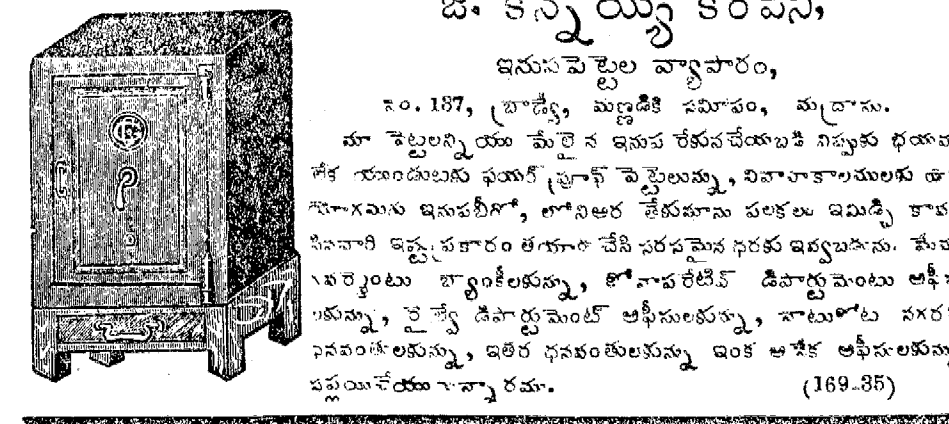 జి. కన్నయ్య కంపెని,
ఇనుపపెట్టెల వ్యాపారం,
నం. 137, బ్రాడ్వే, మణ్ణడికి సమీపం, మద్రాసు.
మా పెట్టలన్నియు మేలైన ఇనుప రేకునచేయబడి నిప్పుకు
లేక యుండుటకు ఫయర్ ప్రూఫ్ పెట్టెలున్ను, వివాహకాలములకు
ఇనుపబీరో, లోనిఅర తేకుమాను పలకలు ఇమిడ్చి
ఇష్టప్రకారం తయారు చేసి సరసమైన ధరకు ఇవ్వబడును.
బ్యాంకీలకున్ను, కోవాపరేటివ్ డిపార్టుమెంటు
రైల్వే డిపార్టుమెంట్ ఆఫీసులకున్ను, నాటుకోట నగర
ఇతర ధనవంతులకున్ను ఇంక అనేక ఆఫీసులకున్ను
సప్లయిచేయుచున్నారము. (169-35)